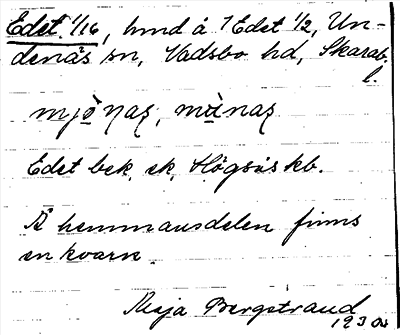 Edet 1/16, hmd å 7 Edet 1/2, Un-
denäs sn, Vadsbo hd, Skarab.
l.
Edet bek. ek. Högsäs kb.
Å hemmansdelen finns
en kvarn.
Maja Bergstrand
1930